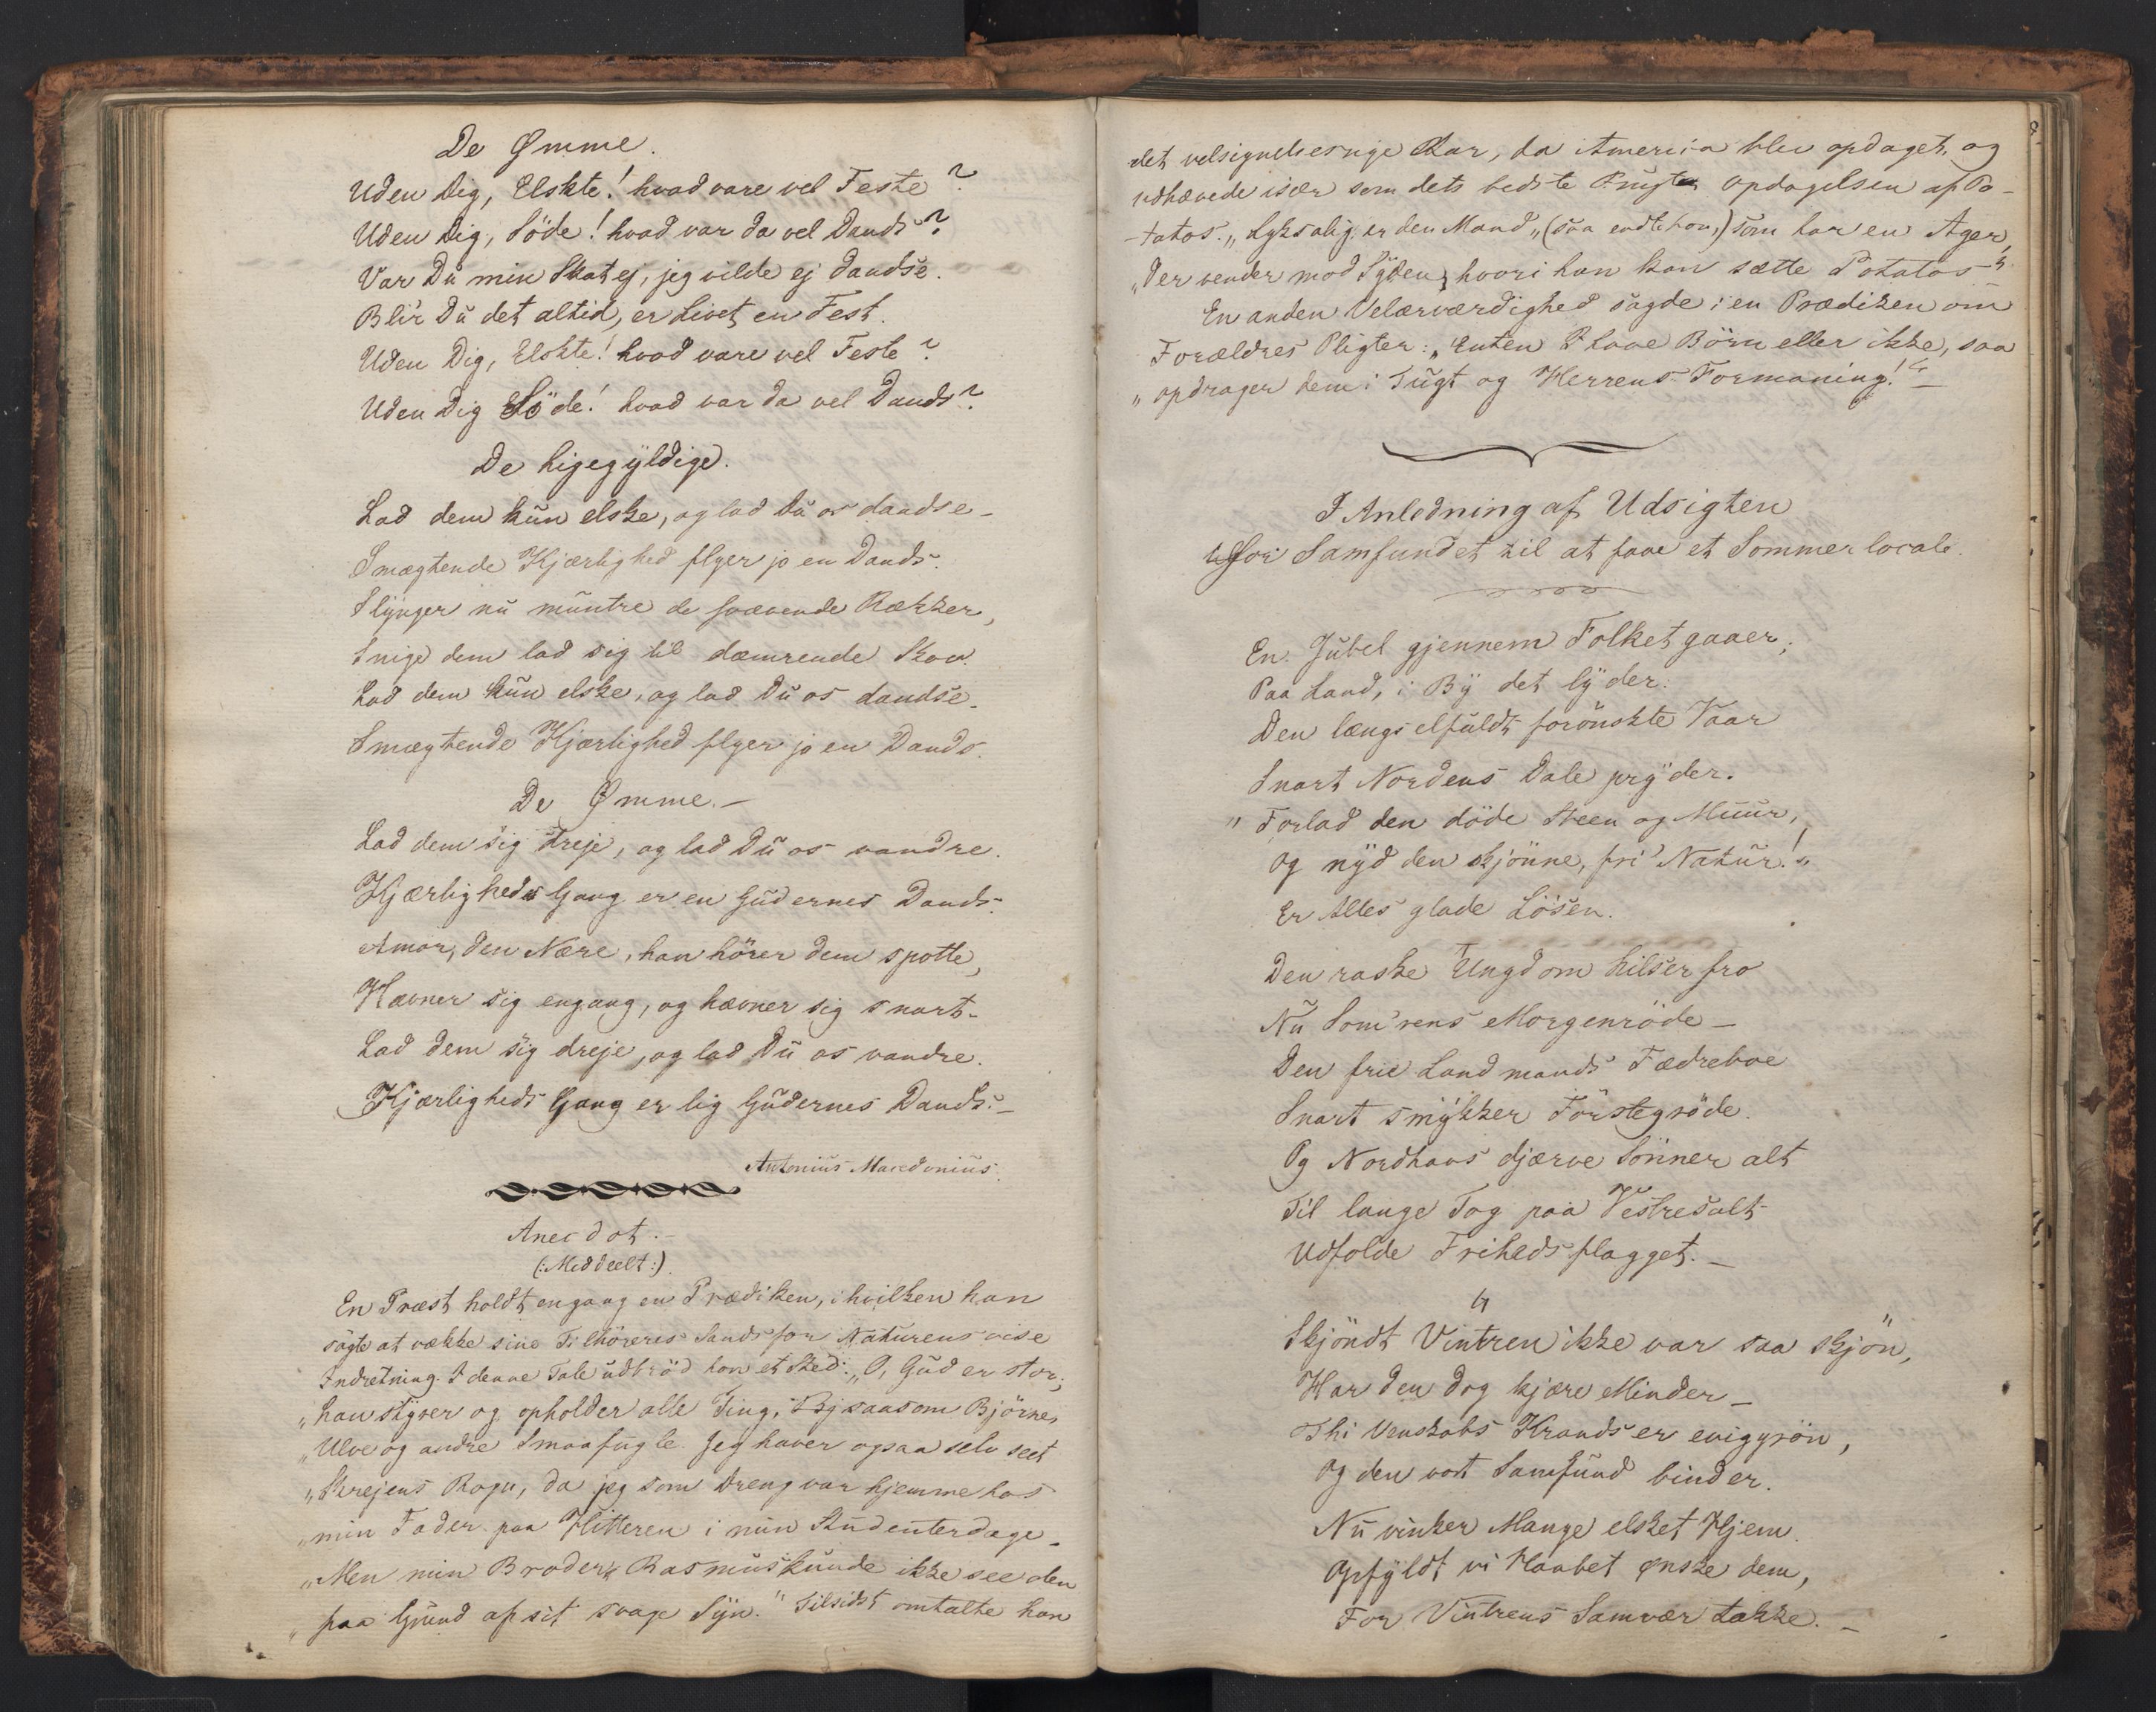 De Ømme.
Uden Dig, Elskte! hvad vare vel Feste?
Uden Dig, Söde! hvad var da vel Dands?
Var Du min Skat ej, jeg vilde ej dandse.
Bliv Du det altid, er Livet en Fest.
Uden Dig, Elskte! hvad vare vel Feste?
Uden Dig Söde! hvad var da vel Dands?
De ligegyldige.
Lad dem kun elske, og lad Du os dandse –
Smægtende Kjærlighed flyer jo en Dands.
Slynger nu muntre de svævende Rækker,
Snige dem lad sig til dæmrende Skov.
Lad dem kun elske, og lad Du os dandse.
Smægtende Kjærlighed flyer jo en Dands.
De Ømme. –
Lad dem sig dreje, og lad Du os vandre.
Kjærligheds Gang er en Gudernes Dands.
Amor, den Nære, han hörer dem spotte,
Hævner sig engang, og hævner sig snart –
Lad dem sig dreje, og lad Du os vandre.
Kjærligheds Gang er lig Gudernes Dands. –
Antonius Macedonius.
Anecdot. –
(: Meddeelt :)
En Præst holdt engang en Prædiken, i hvilken han
sögte at vække sine Tilhöreres Sands for Naturens vise
Indretning. I denne Tale udbröd han et Sted: „O, Gud er stor;
„han styrer og opholder alle Ting, saasom Björne,
„Ulve og andre Smaafugle. Jeg haver ogsaa selv seet
„Skrejens Rogn, da jeg som Dreng var hjemme hos
„min Fader paa Hitteren i min Studenterdage –
„Men min Broder Rasmus kunde ikke see den
„paa Grund af sit svage Syn." Tilsidst omtalte han
det velsignelsesrige Aar, da America blev opdaget, og
udhævede især som dets bedste Frugter Opdagelsen af Po-
-tatos. „Lyksalig er den Mand„ (saa endte han,) som har en Ager,
„der vender mod Syden, hvori han kan sætte Potatos"
En anden Velærværdighed sagde i en Prædiken om
Forældres Pligter: „Enten I have Börn eller ikke, saa
„opdrager dem i Tugt og Herrens Formaning!" –
I Anledning af Udsigten
for Samfundet til at faae et Sommerlocale.
En Jubel gjennem Folket gaaer;
Paa Land, i By det lyder:
Den længselfuldt forönskte Vaar
Snart Nordens Dale pryder.
„Forlad den döde Steen og Muur,
Og nyd den skjönne, fri' Natur!„
Er Alles glade Lösen.
Den raske Ungdom hilser fro
Nu Som'rens Morgenröde –
Den frie Landmands Fædreboe
Snart smykker Förstegröde.
Og Nordhavs djærve Sönner alt
Til lange Tog paa Vestresalt
Udfolde Frihedsflagget. –
Skjöndt Vintren ikke var saa skjön,
Har den dog kjære Minder –
Thi Venskabs Krands er eviggrön,
Og den vort Samfund binder.
Nu vinker Mange elsket Hjem.
Opfyldt vi Haabet ønske dem,
For Vintrens Samvær takke. –